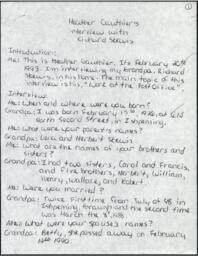 1
Heather Gauthier's
Interview with
Richard Stewis
Introduction:
Me: This is Heather Gauthier. It's February 20th
1993. I'm interviewing my Grandpa, Richard
in his home. The main topic of this
interview is his, "Work at the Post Office".
Interview:
Me: When and where were you born?
Grandpa: I was born February at
North Second Street, in Ishpeming.
Me: What were your parent's names?
Grandpa: and Herbert
Me: What are the names of your brothers and
sisters?
Grandpa: I had two sisters, Carol and Francis,
and five brothers, Herbert, William,
Henry, Wallace, and Robert.
Me: Were you married?
Grandpa: Twice. First time from July of 48 in
Ishpeming, through and the second time
was March the
Me: What were your spouse's names?
Grandpa: Betty, she passed away on February
1990